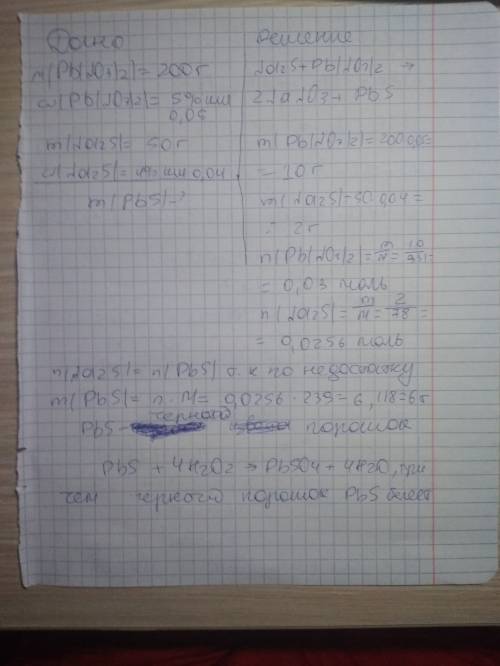 Дано
m(Pb(NO3)2) = 200 г
w(Pb(NO3)2) = 5% или
0,05
m(Na2S) = 50 г
w(Na2S) = 4% или 0,04
m(PbS) - ?
Решение
Na2S + Pb(NO3)2 →
2NaNO3 + PbS
m(Pb(NO3)2) = 200·0,05 =
= 10 г
m(Na2S) = 50·0,04 =
= 2 г
n(Pb(NO3)2) = m/M = 10/331 =
= 0,03 моль
n(Na2S) = m/M = 2/78 =
= 0,0256 моль
n(Na2S) = n(PbS) т.к по недостатку
m(PbS) = n · M = 0,0256 · 239 = 6,118 = 6г
черного
PbS - порошок
PbS + 4H2O2 → PbSO4 + 4H2O, при
чем черного порошок PbS белеет